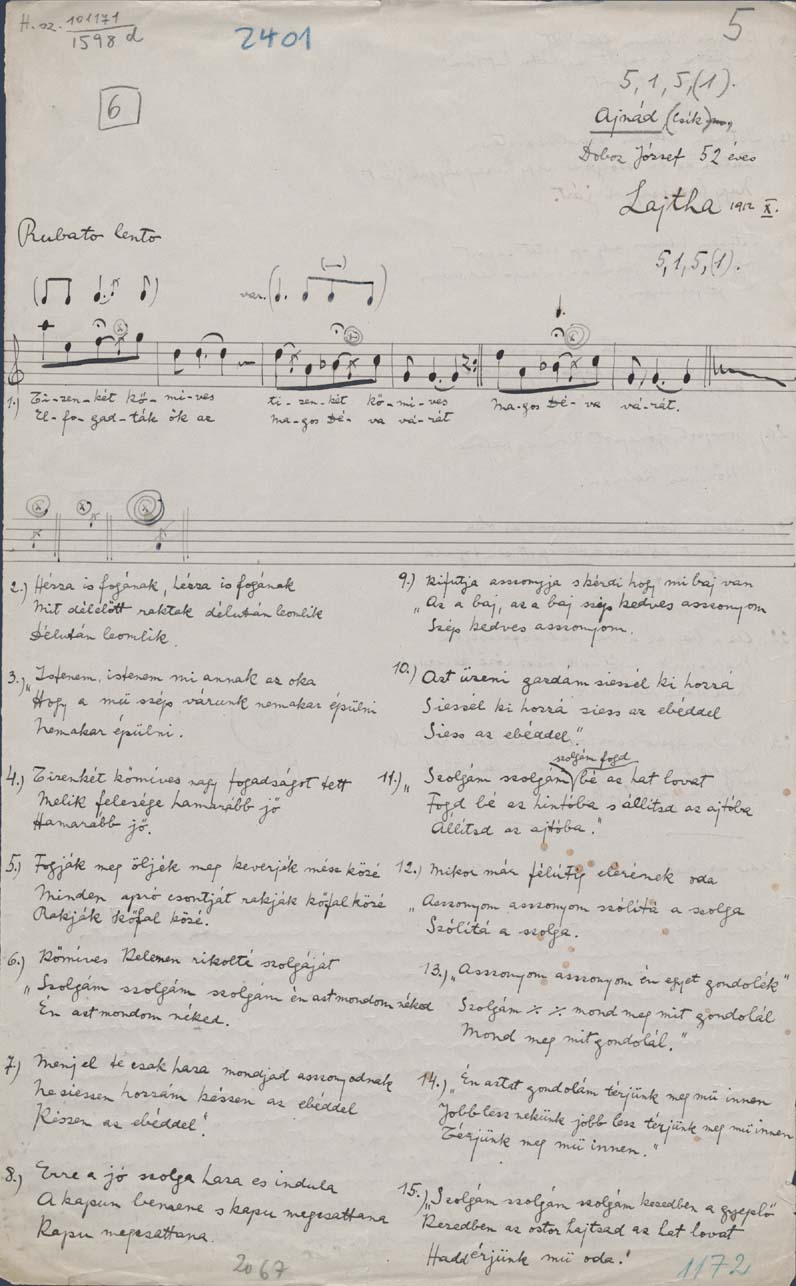 H. sz. 101171
1598 d
2401
5
6
5, 1, 5, (1).
Ajnád (Csík)
Doboz József 52 éves
Lajtha 1912 X.
5, 1, 5, (1).
Rubato lento
var.
1.) Ti-zen-két kő-mi-ves ti-zen-két kő-mi-ves Ma-gos Dé-va vá-rát.
El-fo-gad-ták ők az ma-gos Dé-va vá-rát
2.) Hézza is fogának, hézza is fogának
Mit délélőtt raktak délután leomlik
Délután leomlik.
3.) „Istenem, istenem mi annak az oka
Hogy a mü szép várunk nemakar épülni
Nemakar épülni.
4.) Tizenkét kömíves nagy fogadságot tett
Melik felesége hamarább jő
Hamarább jő.
5.) Fogják meg öljék meg keverjék mész közé
Minden apró csontját rakják kőfal közé
Rakják kőfal közé.
6.) Kömíves Kelemen rikolté szolgáját
„Szolgám szolgám, szolgám én aztmondom néked
Én aztmondom néked.
7.) Menj el té csak haza mondjad asszonyodnak
Ne siessen hozzám készen az ebéddel
Készen az ebéddel."
8.) Erre a jó szolga haza es indula
A kapun bemene s kapu megcsattana
Kapu megcsattana.
9.) Kifutja asszonyja s kérdi hogy mi baj van
„Az a baj, az a baj szép kedves asszonyom
Szép kedves asszonyom.
10.) Azt üzeni gazdám siessél ki hozzá
Siessél ki hozzá siess az ebéddel
Siess az ebéddel."
szolgám fogd
11.) „Szolgám szolgám bé az hat lovat
Fogd bé az hintóba s állítsd az ajtóba
Állítsd az ajtóba."
12.) Mikor már félútig elérének oda
„Asszonyom asszonyom szólítá a szolga
Szólítá a szolga.
13.) „Asszonyom asszonyom én egyet gondolék"
Szolgám ٪ ٪ mond meg mit gondolál
Mond meg mit gondolál."
14.) „Én aztat gondolám térjünk meg mü innen
Jobb lesz nekünk jobb lesz térjünk meg mü innen
Térjünk meg mü innen."
15.) „Szolgám szolgám szolgám kezedben a gyeplő
Kezedben az ostor hajtsad az hat lovat
Hadd érjünk mü oda!
2067
1172